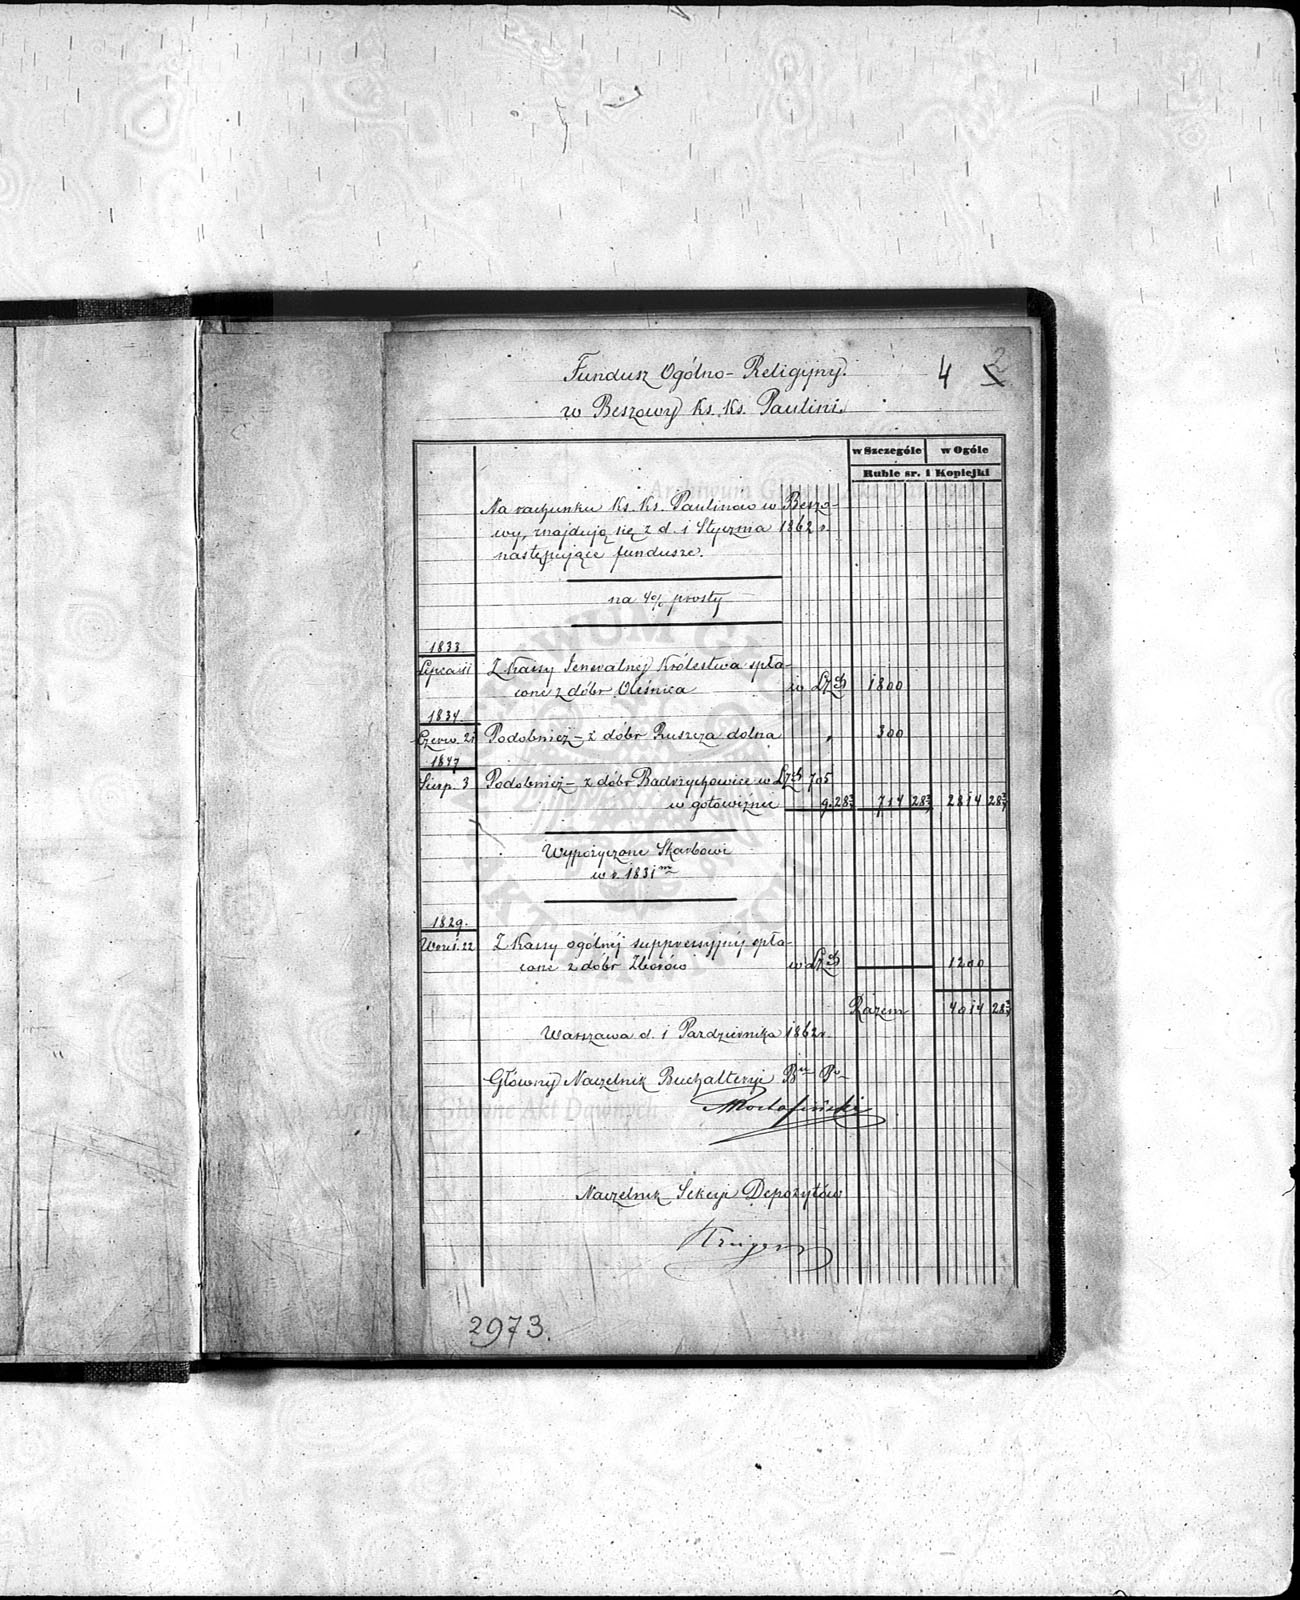 Fundusz Ogólno-Religijny. 4 2
w Beszowy Ks. Ks. Paulini.
w Szczególe w Ogóle
Ruble sr. i Kopiejki
Na rachunku Ks. Ks. Paulinów w Beszo-
wy, znajdują się z d. 1 Stycznia 1862 r.
następujące fundusze.
na 4% prosty
1833.
Lipca 11 Z Kassy Jeneralnéj Królestwa spła-
cone z dóbr Oleśnica w Lzch 1800
1834.
Czerw. 21 Podobnież - z dóbr Ruszcza dolna 300
1847
Sierp. 3 Podobnież - z dóbr Badrzychowice w Lzch 705
w gotowiznie 9.28 714 28 2814 28
Wypożyczone Skarbowi
w r. 1831m
1829.
Wrześ. 22 Z Kassy ogólnéj suppressyjnéj spła-
cone z dóbr Zborów w Lzch 1200
Razem 4014 28
Warszawa d. 1 Pazdziernika 1862 r.
Główny Naczelnik Buchalteryi
Naczelnik Sekcyi Depozytów
2973.
Archiwum Główne Akt Dawnych